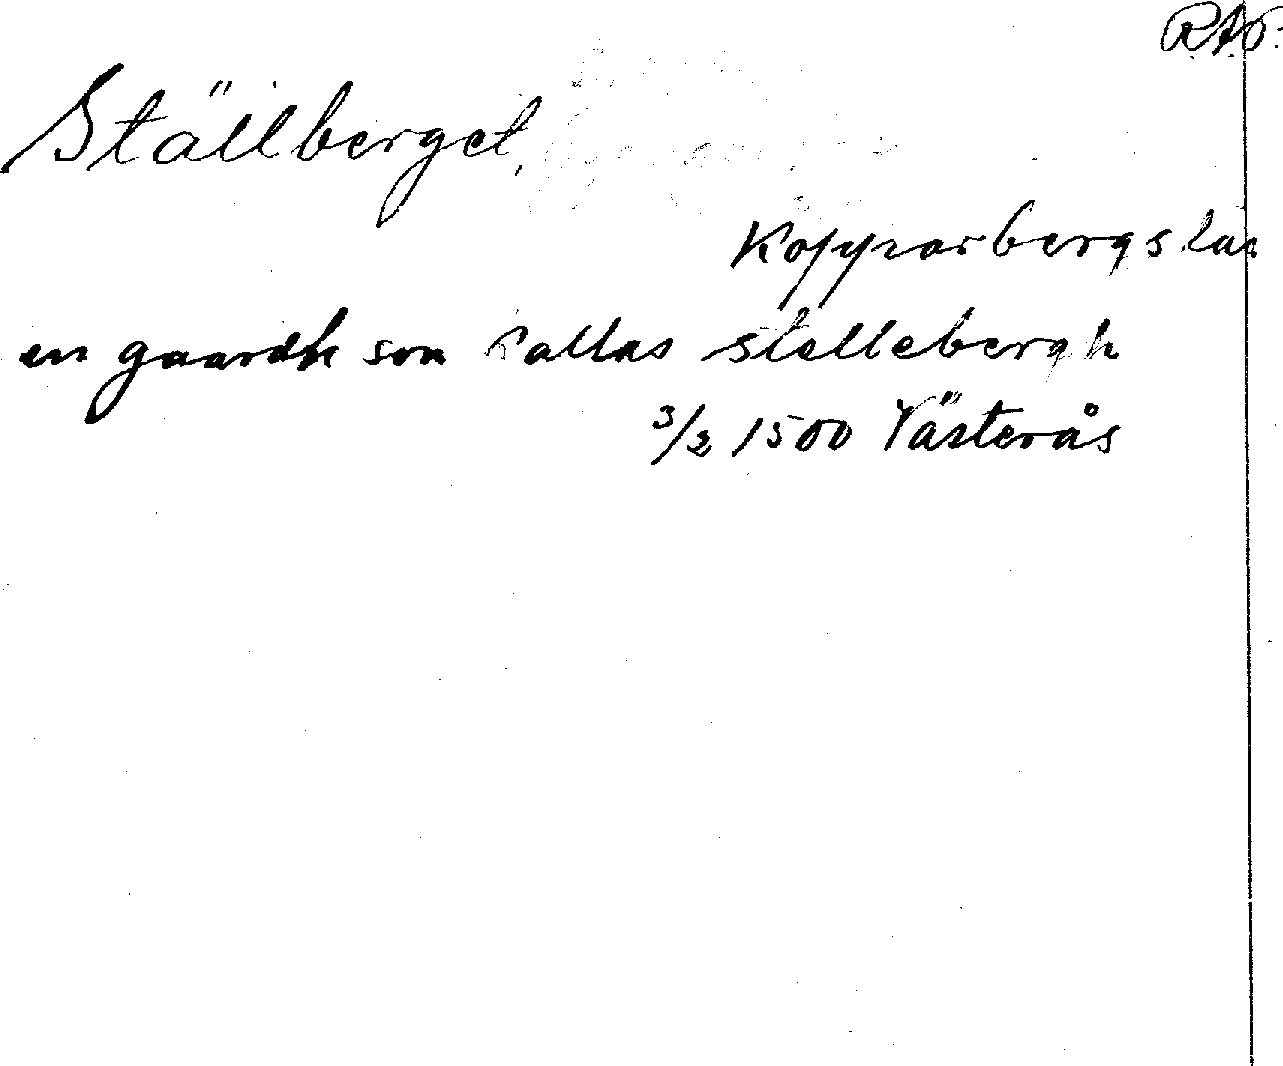 RAP.
Ställberget,
Kopparbergs län
en gaardh som kallas stellebergh
3/2 1500 Västerås